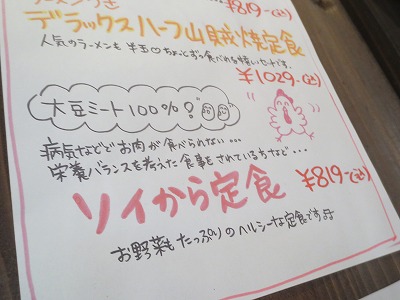 ¥819-(込)
デラックスハーフ山賊焼定食
人気のラーメンも半玉♡ちょこっとずつ食べれる嬉しいセットです。
¥1029-(込)
大豆ミート100%?
病気などでお肉が食べられない...
栄養バランスを考えた食事をされている方など...
ソイから定食 ¥819-(込)
お野菜もたっぷりのヘルシーな定食です